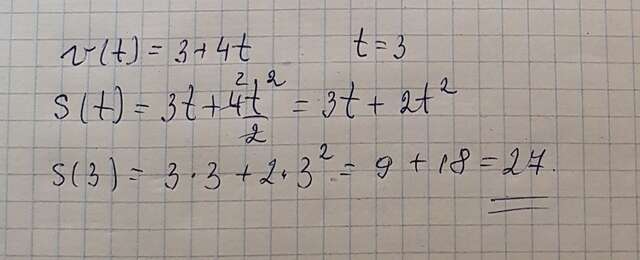 v(t) = 3 + 4t t = 3
S(t) = 3t + 4t²/2 = 3t + 2t²
S(3) = 3 · 3 + 2 · 3² = 9 + 18 = 27.